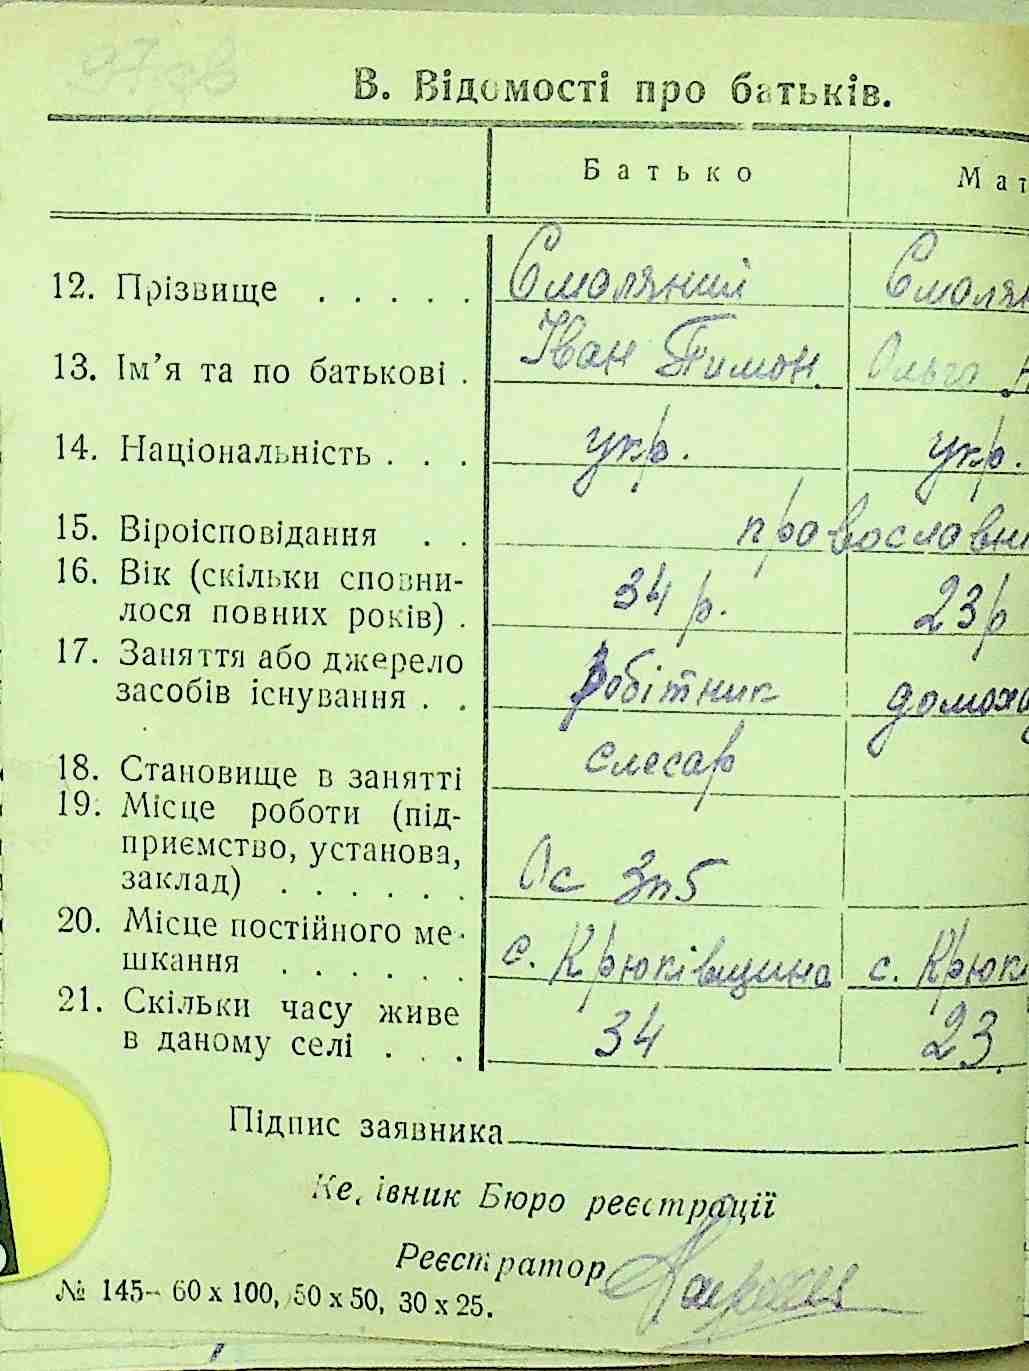 В. Відомості про батьків.
Батько Мат
12. Прізвище . . . . . Смоляний Смолян
13. Ім’я та по батькові . Іван Тимон. Ольга
14. Національність . . . укр. укр.
15. Віроісповідання . . православни
16. Вік (скільки сповни-
лося повних років) . 34 р. 23р
17. Заняття або джерело
засобів існування . . робітник домоха
18. Становище в занятті слесар
19. Місце роботи (під-
приємство, установа,
заклад) . . . . . . Ос Зп5
20. Місце постійного ме-
шкання . . . . . . с. Крюківщина с. Крюкі
21. Скільки часу живе
в даному селі . . . 34 23.
Підпис заявника
Керівник Бюро реєстрації
Реєстратор
№ 145- 60 х 100, 50 х 50, 30 х 25.